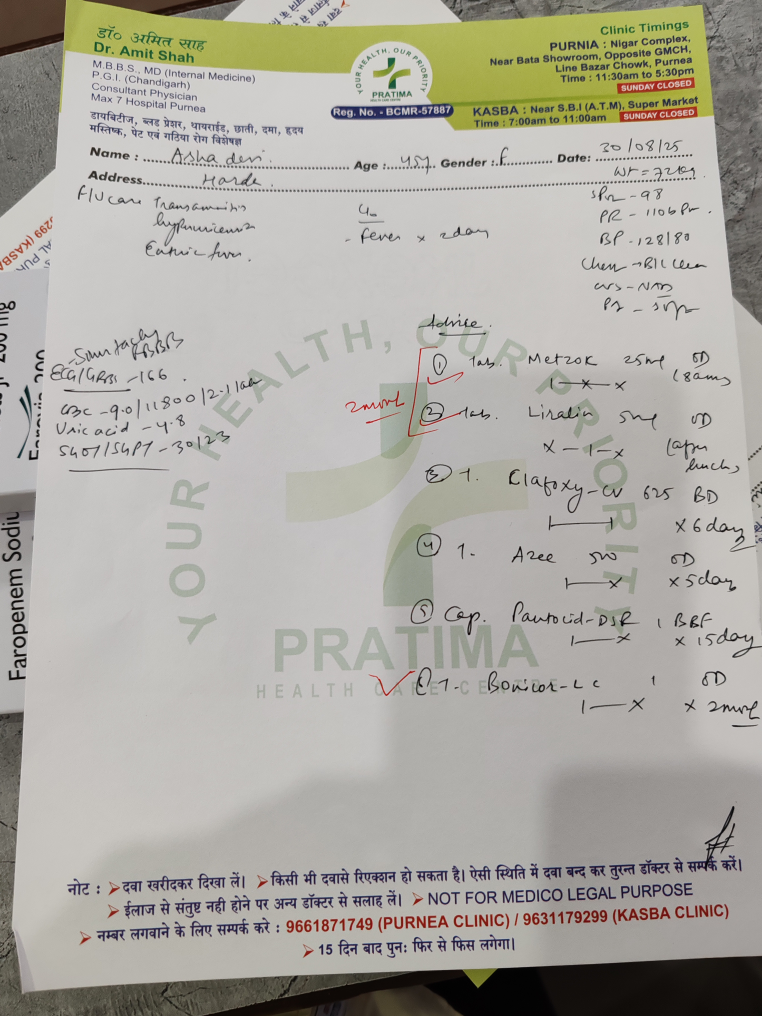 डॉ० अमित साह
Dr. Amit Shah
M.B.B.S., MD (Internal Medicine)
P.G.I. (Chandigarh)
Consultant Physician
Max 7 Hospital Purnea
डायबिटीज, ब्लड प्रेशर, थायराईड, छाती, दमा, हृदय
मस्तिष्क, पेट एवं गठिया रोग विशेषज्ञ
YOUR HEALTH, OUR PRIORITY
PRATIMA
HEALTH CARE CENTRE
Reg. No. - BCMR-57887
Clinic Timings
PURNIA : Nigar Complex,
Near Bata Showroom, Opposite GMCH,
Line Bazar Chowk, Purnea
Time : 11:30am to 5:30pm
SUNDAY CLOSED
KASBA : Near S.B.I (A.T.M), Super Market
Time : 7:00am to 11:00am SUNDAY CLOSED
Name : Asha devi Age : 45y Gender : F Date: 30/08/25
Address
Wt = 72kg
F/U case
fever.
c/o
- Fever x 2day
SPO2 - 98
PR - 110
BP - 128/80
CVS - NAD
RBBB
ECG/GRBS - 166
CBC - 9.0/11800/2.11
Uric acid - 4.8
SGOT/SGPT - 30/23
Advise
2
① Tab. Metzok 25mg OD
1 — x — x (8am)
② Tab. 5mg OD
x - 1 - x (after lunch)
③ T. Clafoxy-CV 625 BD
x 6day
④ T. Azee 500 OD
x 5day
⑤ Cap. Pantocid-DSR 1 BBF
1 — x x 15day
T. 1 OD
1 — x x 2
YOUR HEALTH, OUR PRIORITY
PRATIMA
HEALTH CARE CENTRE
नोट : ➢दवा खरीदकर दिखा लें। ➢किसी भी दवासे रिएक्शन हो सकता है। ऐसी स्थिति में दवा बन्द कर तुरन्त डॉक्टर से सम्पर्क करें।
➢ ईलाज से संतुष्ट नही होने पर अन्य डॉक्टर से सलाह लें। ➢ NOT FOR MEDICO LEGAL PURPOSE
➢ नम्बर लगवाने के लिए सम्पर्क करे : 9661871749 (PURNEA CLINIC) / 9631179299 (KASBA CLINIC)
➢ 15 दिन बाद पुन: फिर से फिस लगेगा।
Faropenem Sodiu
200 mg